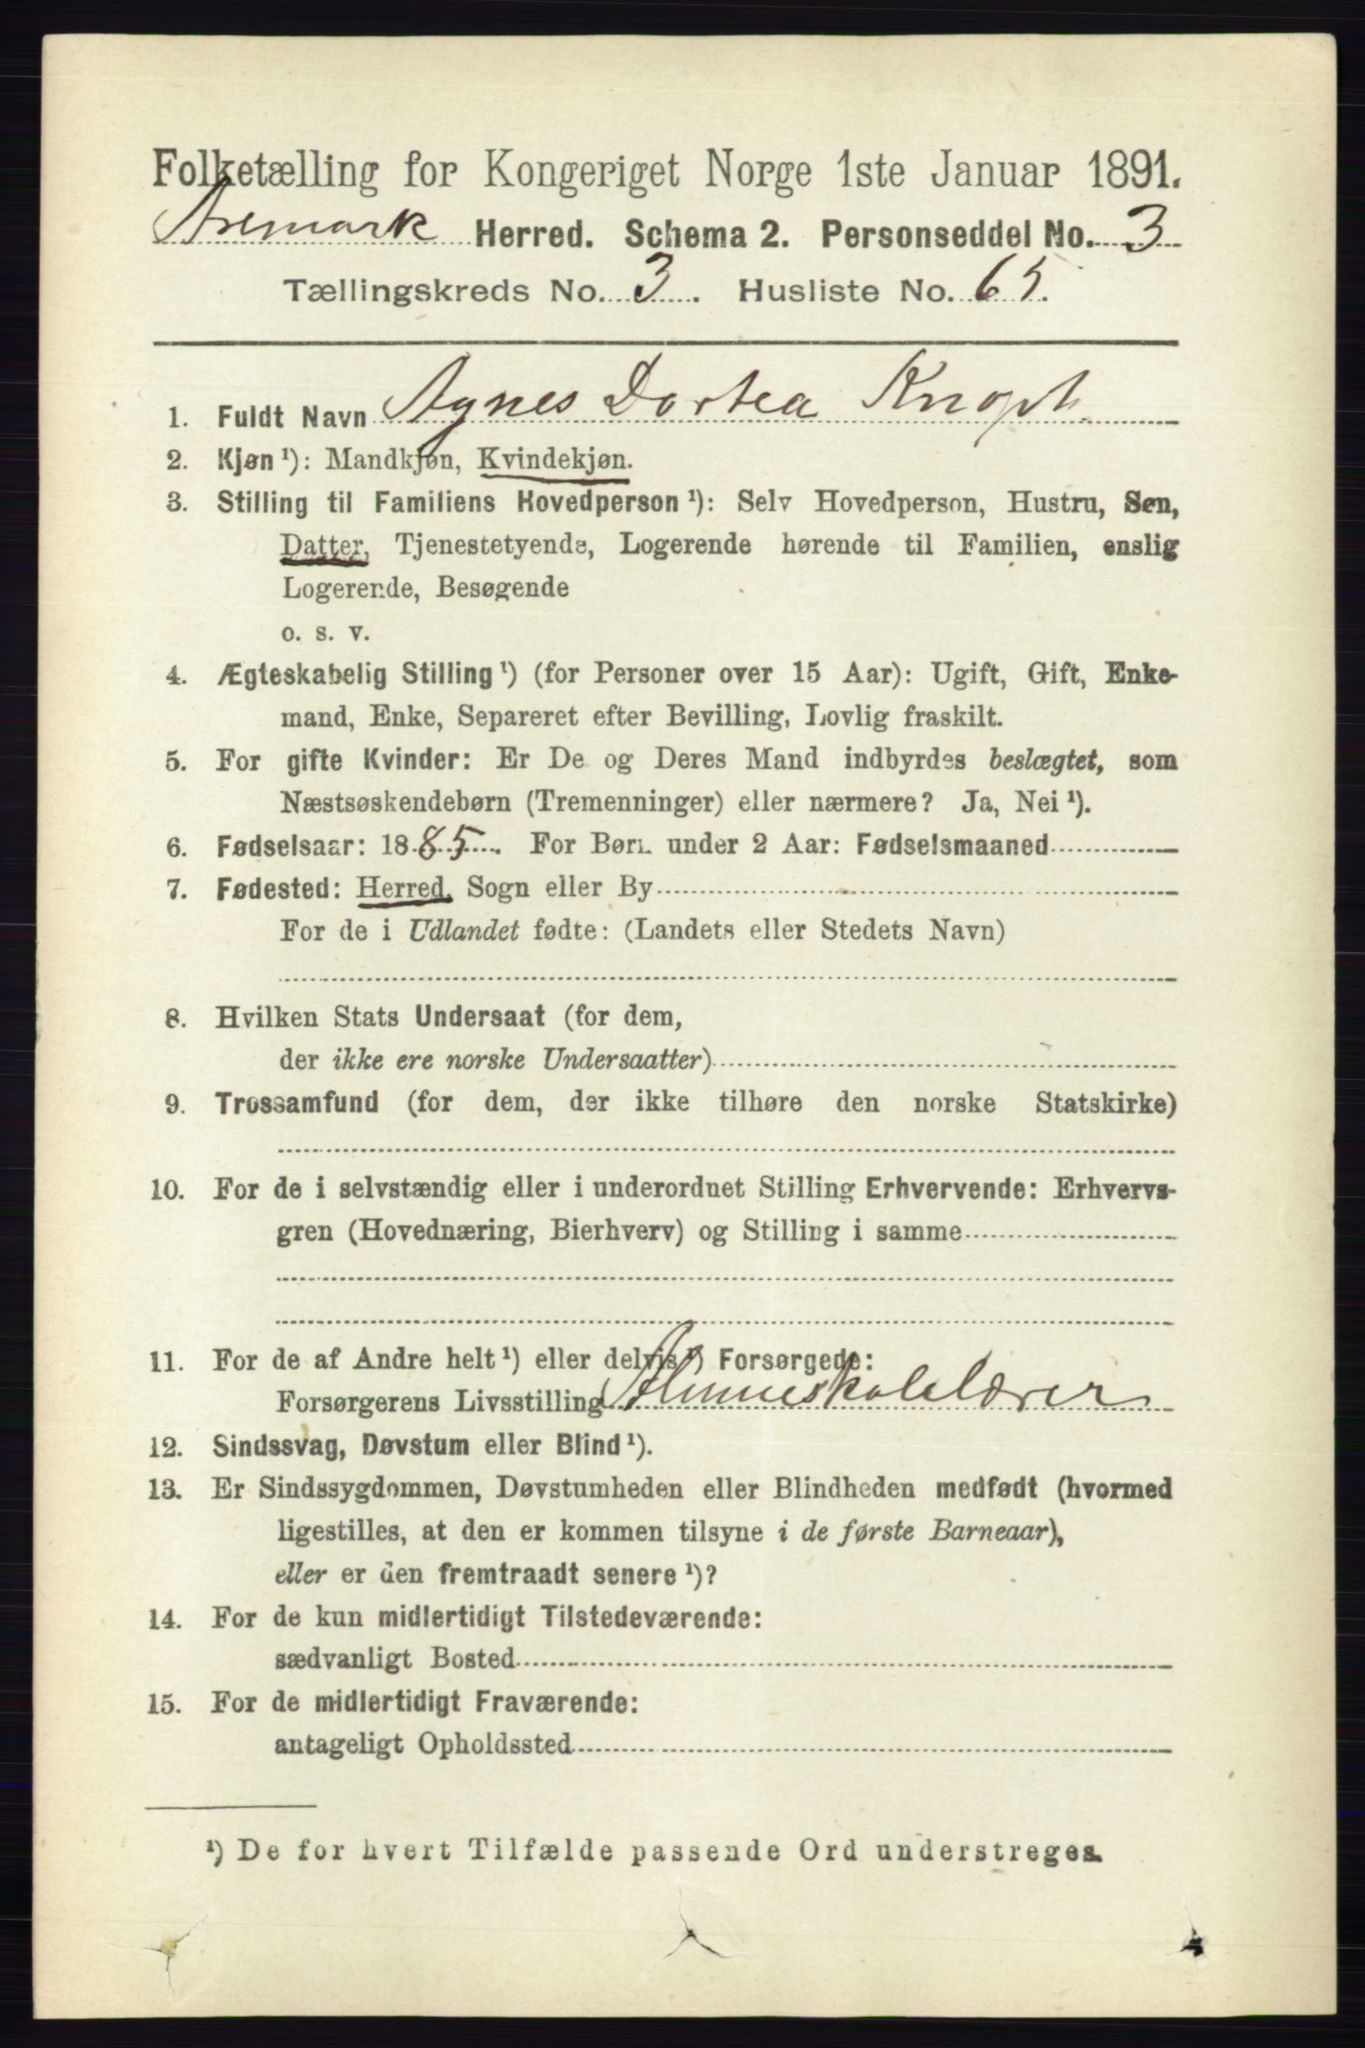 Folketælling for Kongeriget Norge 1ste Januar 1891.
Aremark Herred. Schema 2. Personseddel No. 3
Tællingskreds No. 3. Husliste No. 65.
1. Fuldt Navn Agnes Dortea Knoph
2. Kjøn ¹): Mandkjøn, Kvindekjøn.
3. Stilling til Familiens Hovedperson ¹): Selv Hovedperson, Hustru, Søn,
Datter, Tjenestetyende, Logerende hørende til Familien, enslig
Logerende, Besøgende
o. s. v.
4. Ægteskabelig Stilling ¹) (for Personer over 15 Aar): Ugift, Gift, Enke-
mand, Enke, Separeret efter Bevilling, Lovlig fraskilt.
5. For gifte Kvinder: Er De og Deres Mand indbyrdes beslægtet, som
Næstsøskendebørn (Tremenninger) eller nærmere? Ja, Nei ¹).
6. Fødselsaar: 1885. For Børn under 2 Aar: Fødselsmaaned
7. Fødested: Herred, Sogn eller By
For de i Udlandet fødte: (Landets eller Stedets Navn)
8. Hvilken Stats Undersaat (for dem,
der ikke ere norske Undersaatter)
9. Trossamfund (for dem, der ikke tilhøre den norske Statskirke)
10. For de i selvstændig eller i underordnet Stilling Erhvervende: Erhvervs-
gren (Hovednæring, Bierhverv) og Stilling i samme
11. For de af Andre helt ¹) eller delvis ¹) Forsørgede:
Forsørgerens Livsstilling Almueskolelærer
12. Sindssvag, Døvstum eller Blind ¹).
13. Er Sindssygdommen, Døvstumheden eller Blindheden medfødt (hvormed
ligestilles, at den er kommen tilsyne i de første Barneaar),
eller er den fremtraadt senere ¹)?
14. For de kun midlertidigt Tilstedeværende:
sædvanligt Bosted
15. For de midlertidigt Fraværende:
antageligt Opholdssted
¹) De for hvert Tilfælde passende Ord understreges.